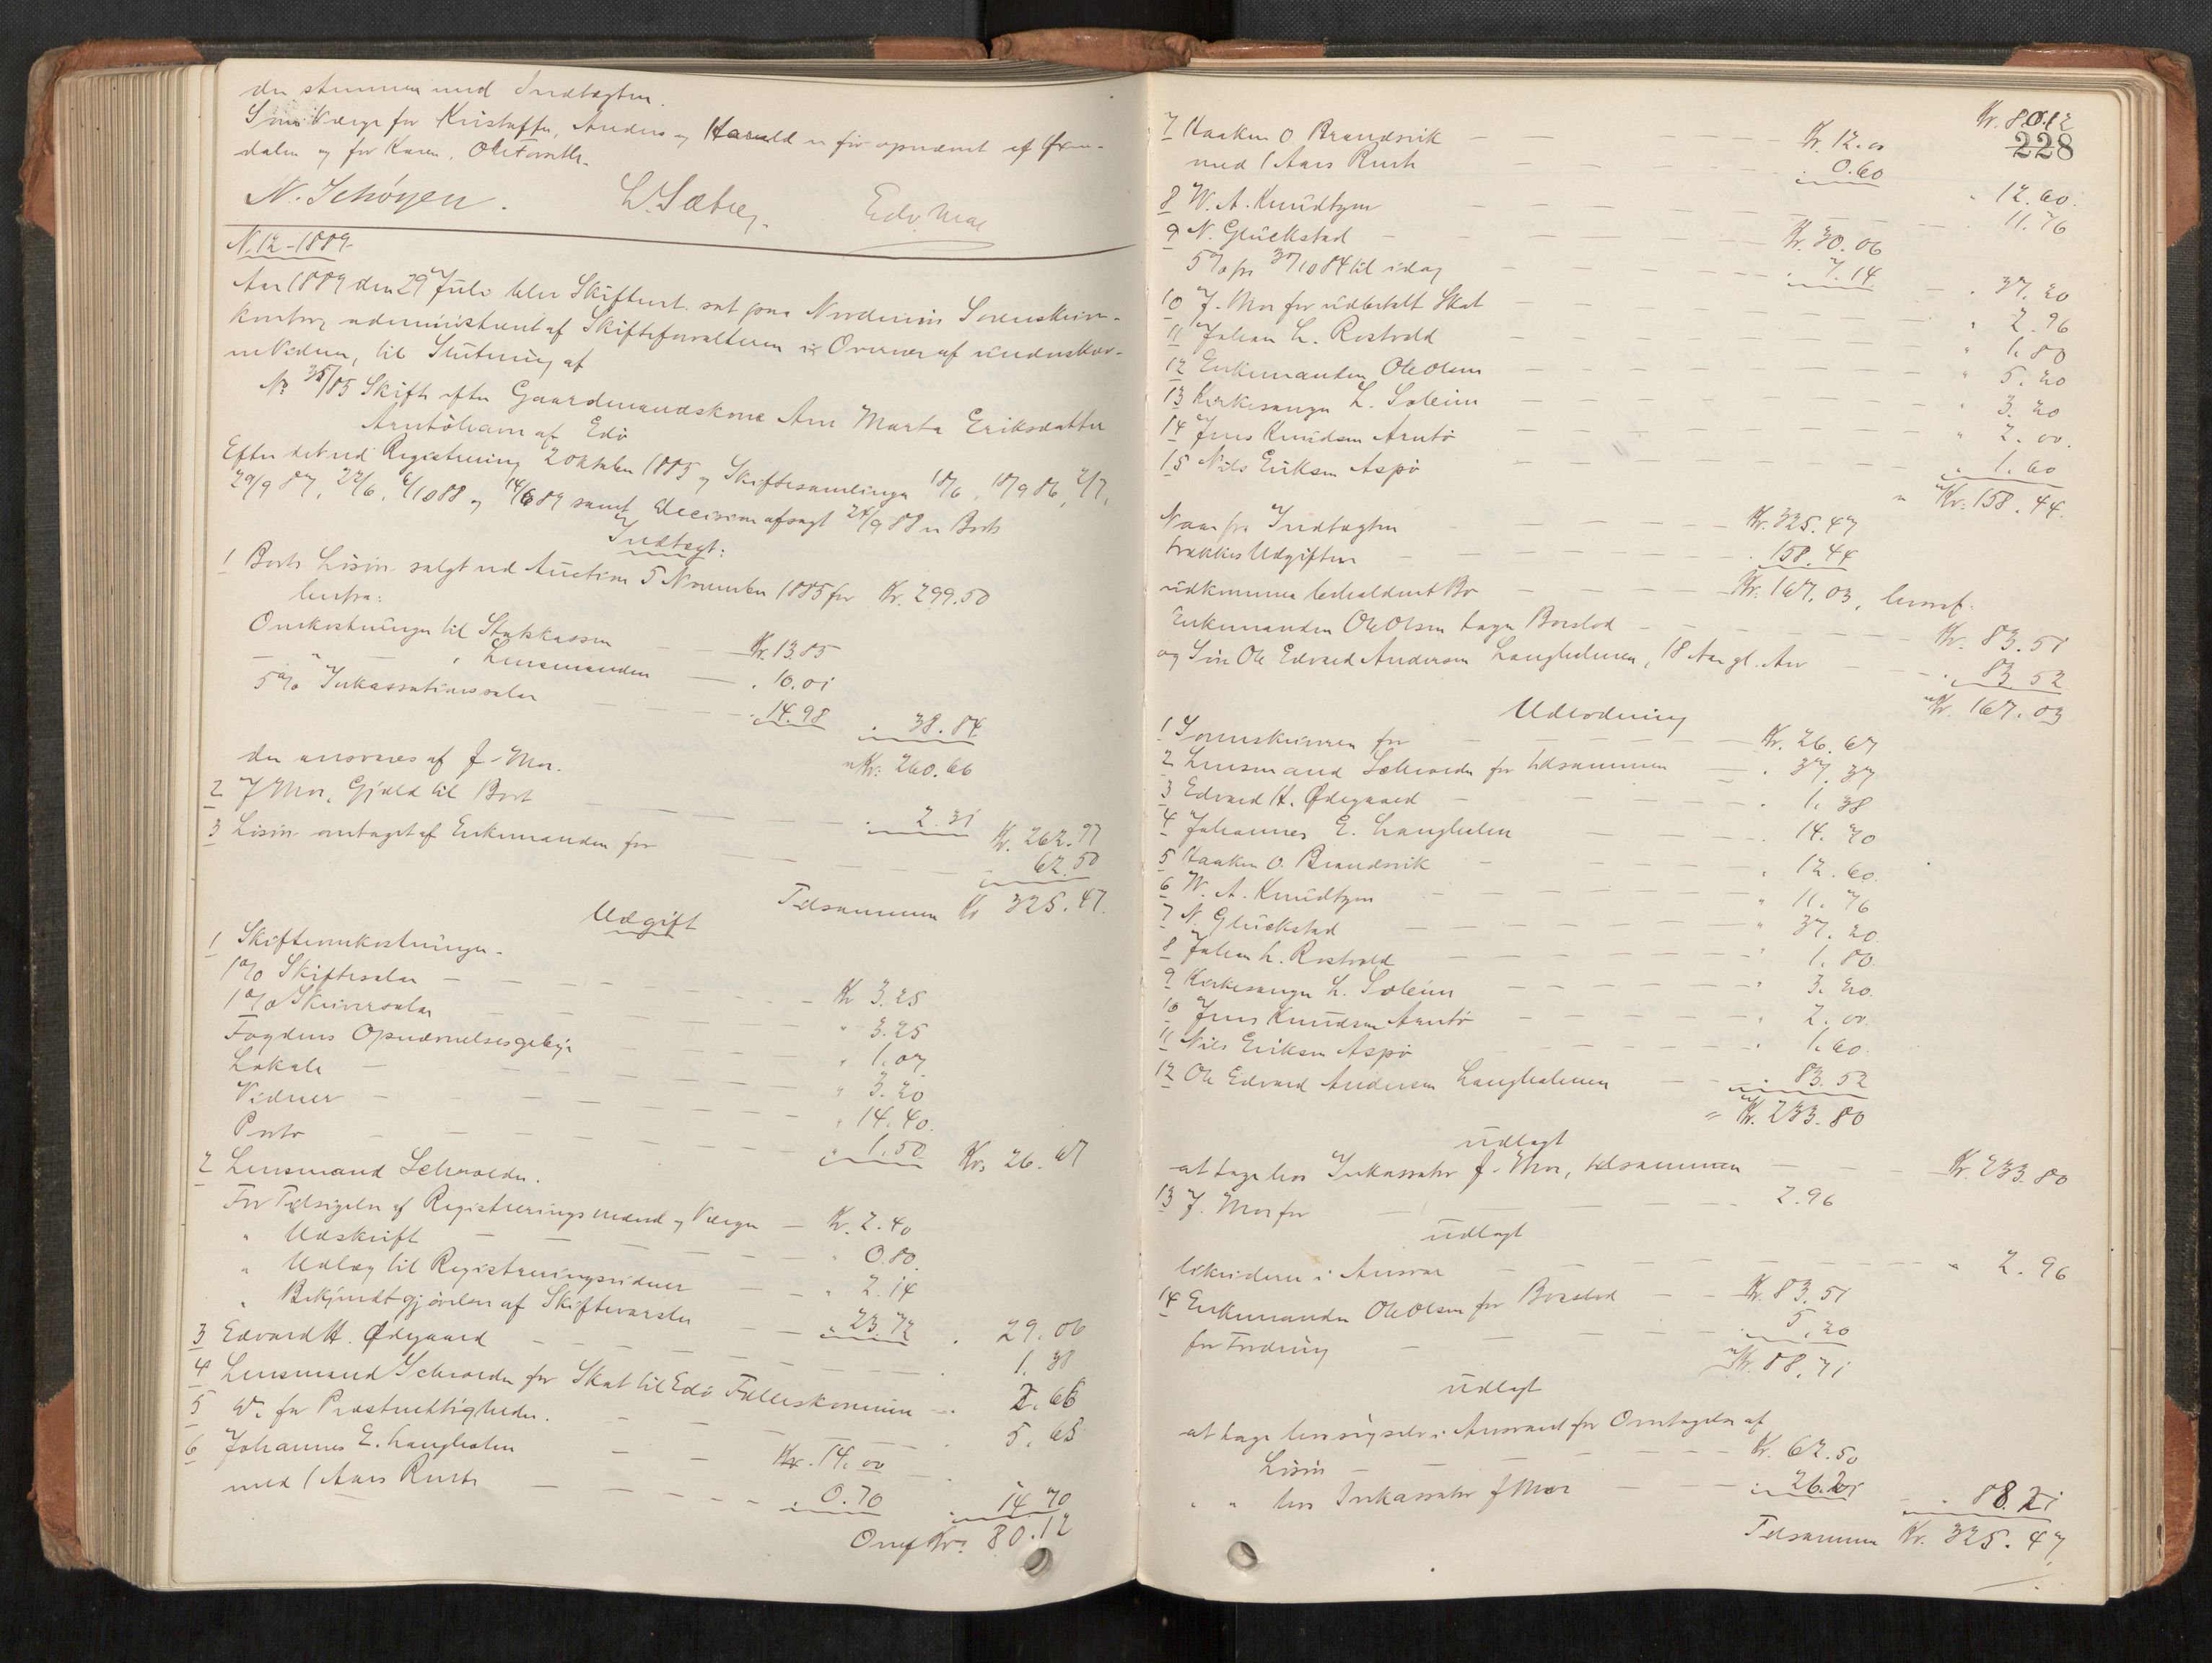 der stemmer med Indtægten.
Som Værge for Kristoffer, Anders og Harald er før opnævnt af
dalen og for Karen, Ole
N. Schøyen. L. Sæbrey. Edv. Moe
N. 12 - 1889.
Aar 1889 den 29 Juli blev Skifteret sat paa Nordmøre Sorenskriver-
kontor administreret af Skifteforvalteren i Overvær af underskrev-
ne Vidner, til Slutning af
No 35/85 Skifte efter Gaardmandskone Ane Marta Eriksdatter
Arntöhavn af Edö
Efter det ved Registrering 2 Oktober 1885 og Skiftesamlinger 18/6, 18/9 86, 2/7,
29/9 87, 22/6, 6/10 88 og 14/6 89 samt Decision afsagt 24/9 88 er Boets
Indtægt:
1 Boets Løsøre solgt ved Auction 5 November 1885 for Kr. 299.50
herfra:
Omkostninger til Statskassen Kr. 13.85
— " Lensmanden " 10.01
5 % Inkassationssalær " 14.98 " 38.84
der ansvares af J. Moe. Kr. 260.66
2 J. Moe, Gjæld til Boet " 2.31 Kr. 262.97
3 Løsøre overtaget af Enkemanden for " 62.50
Tilsammen Kr 325.47.
Udgift
1 Skifteomkostninger.
1 % Skiftesalær Kr 3.25
1 % Skriversalær " 3.25
Fogdens Opnævnelsesgebyr " 1.07
Lokale " 3.20
Vidner " 14.40
Porto " 1.50 Kr. 26.67
2 Lensmand Schrøder.
For Tilsigelse af Registreringsmænd og Værger Kr. 2.40
" Udskrift " 0.80
" Udlæg til Registreringsvidner " 2.14
" Bekjendtgjørelse af Skiftevarsler " 23.72 " 29.06
3 Edvard H. Ødegaard 1.38
4 Lensmand Schrøder for Skat til Edö Fælleskommune " 2.66
5 Do for Præsterettigheder. " 5.65
6 Johannes E. Langholen Kr. 14.00
med 1 Aars Rente " 0.70 " 14.70
Overf Kr. 80.12
Kr. 80.12
228
7 Haaken O Brandsvik Kr. 12.00
med 1 Aars Rente " 0.60 " 12.60.
8 W. A. Knudtzon " 11.76
9 N. Glückstad Kr. 30.06
5 % fra 30/10 84 til idag " 7.14 " 37.20
10 J. Moe for udbetalt Skat " 2.96
11 Johan L. Rostvold " 1.80
12 Enkemanden Ole Olsen " 5.20
13 Kirkesanger L. Soleim " 3.20
14 Jens Knudsen Arntö " 2.00.
15 Nils Eriksen Aspö " 1.60
Kr. 158.44.
Naar fra Indtægten Kr. 325.47
trækkes Udgiften " 158.44
udkommer beholdent Bo Kr. 167.03, hvoraf
Enkemanden Ole Olsen tager Boeslod Kr. 83.51
og Søn Ole Edvard Andersen Langholmen, 18 Aar gl. Arv " 83 52
Kr. 167.03
Udlodning
1 Sorenskriveren for Kr. 26.67
2 Lensmand Schrøder for tilsammen " 37.37
3 Edvard H. Ødegaard " 1.38
4 Johannes E. Langholen " 14.70
5 Haaken O. Brandsvik " 12.60.
6 W. A. Knudtzon " 11.76
7 N. Glückstad " 37.20
8 Johan L. Rostvold " 1.80.
9 Kirkesanger L. Soleim " 3.20.
10 Jens Knudsen Arntö " 2.00.
11 Nils Eriksen Aspö " 1.60.
12 Ole Edvard Andersen Langholmen " 83.52
Kr. 233.80
udlagt
at tage hos Inkassator J. Moe, tilsammen Kr. 233.80
13 J. Moe for 2.96
udlagt
likviderer i Ansvar " 2.96
14 Enkemanden Ole Olsen for Boeslod Kr. 83.51
for Fordring " 5.20
Kr. 88.71
udlagt
at tage hos sig selv i Ansvaret for Overtagelse af
Løsøre Kr. 62.50
" " hos Inkassator J Moe " 26.21 " 88.71
Tilsammen Kr. 325.47